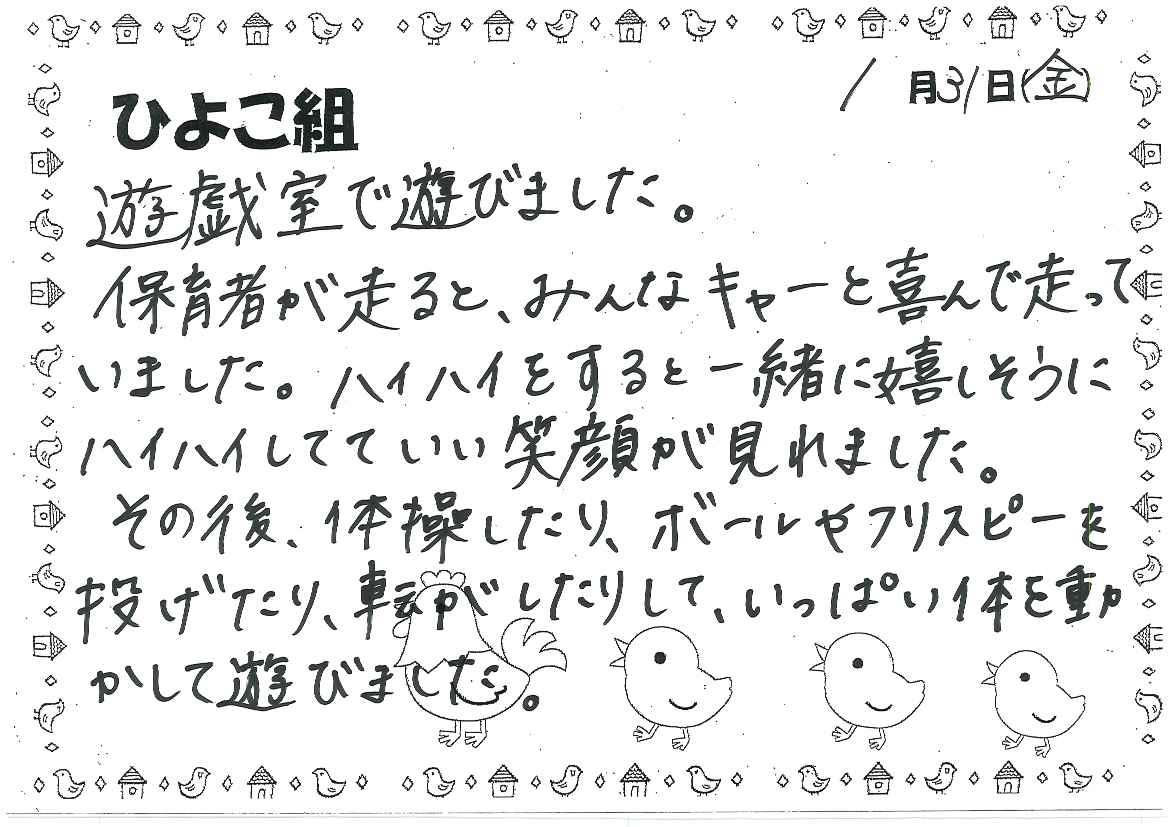 1月31日(金)
ひよこ組
遊戯室で遊びました。
保育者が走ると、みんなキャーと喜んで走って
いました。ハイハイをすると一緒に嬉しそうに
ハイハイしてていい笑顔が見れました。
その後、体操したり、ボールやフリスピーを
投げたり、転がしたりして、いっぱい体を動か
かして遊びました。